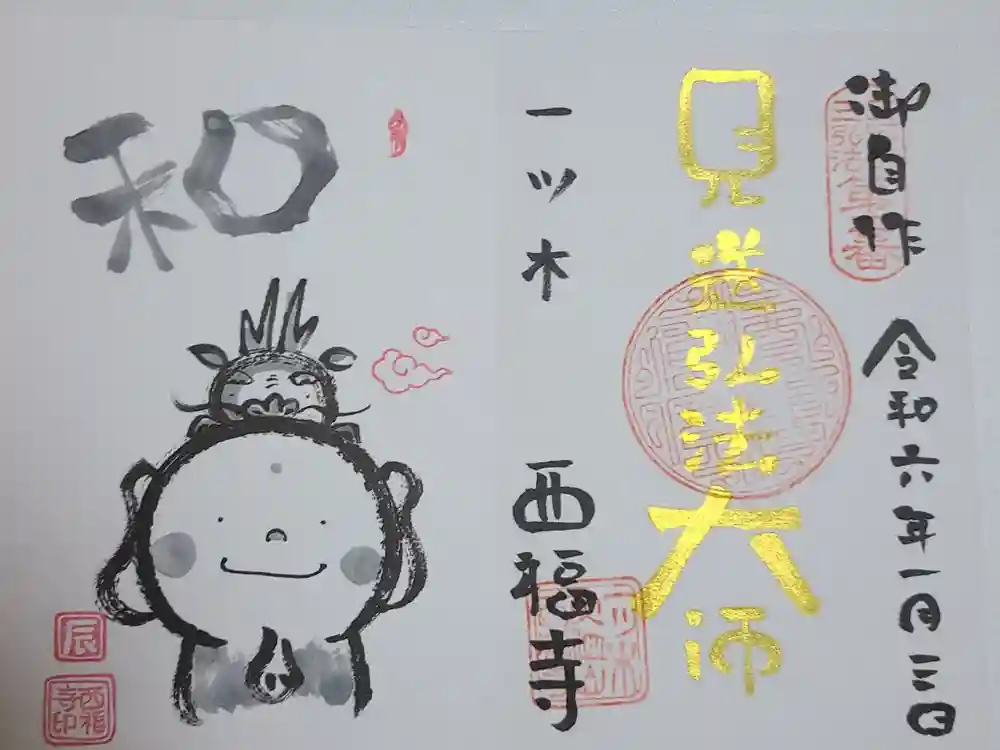 御自作
令和六年一月三日
見送弘法大師
一ツ木
西福寺
和
辰
西福
寺印